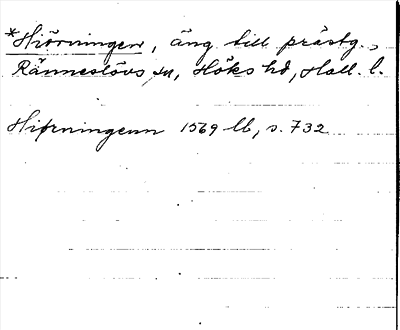 *Hiörningen, äng till prästg.,
Ränneslövs sn, Höks hd, Hall. l.
Hiörningenn 1569 lb, s. 732